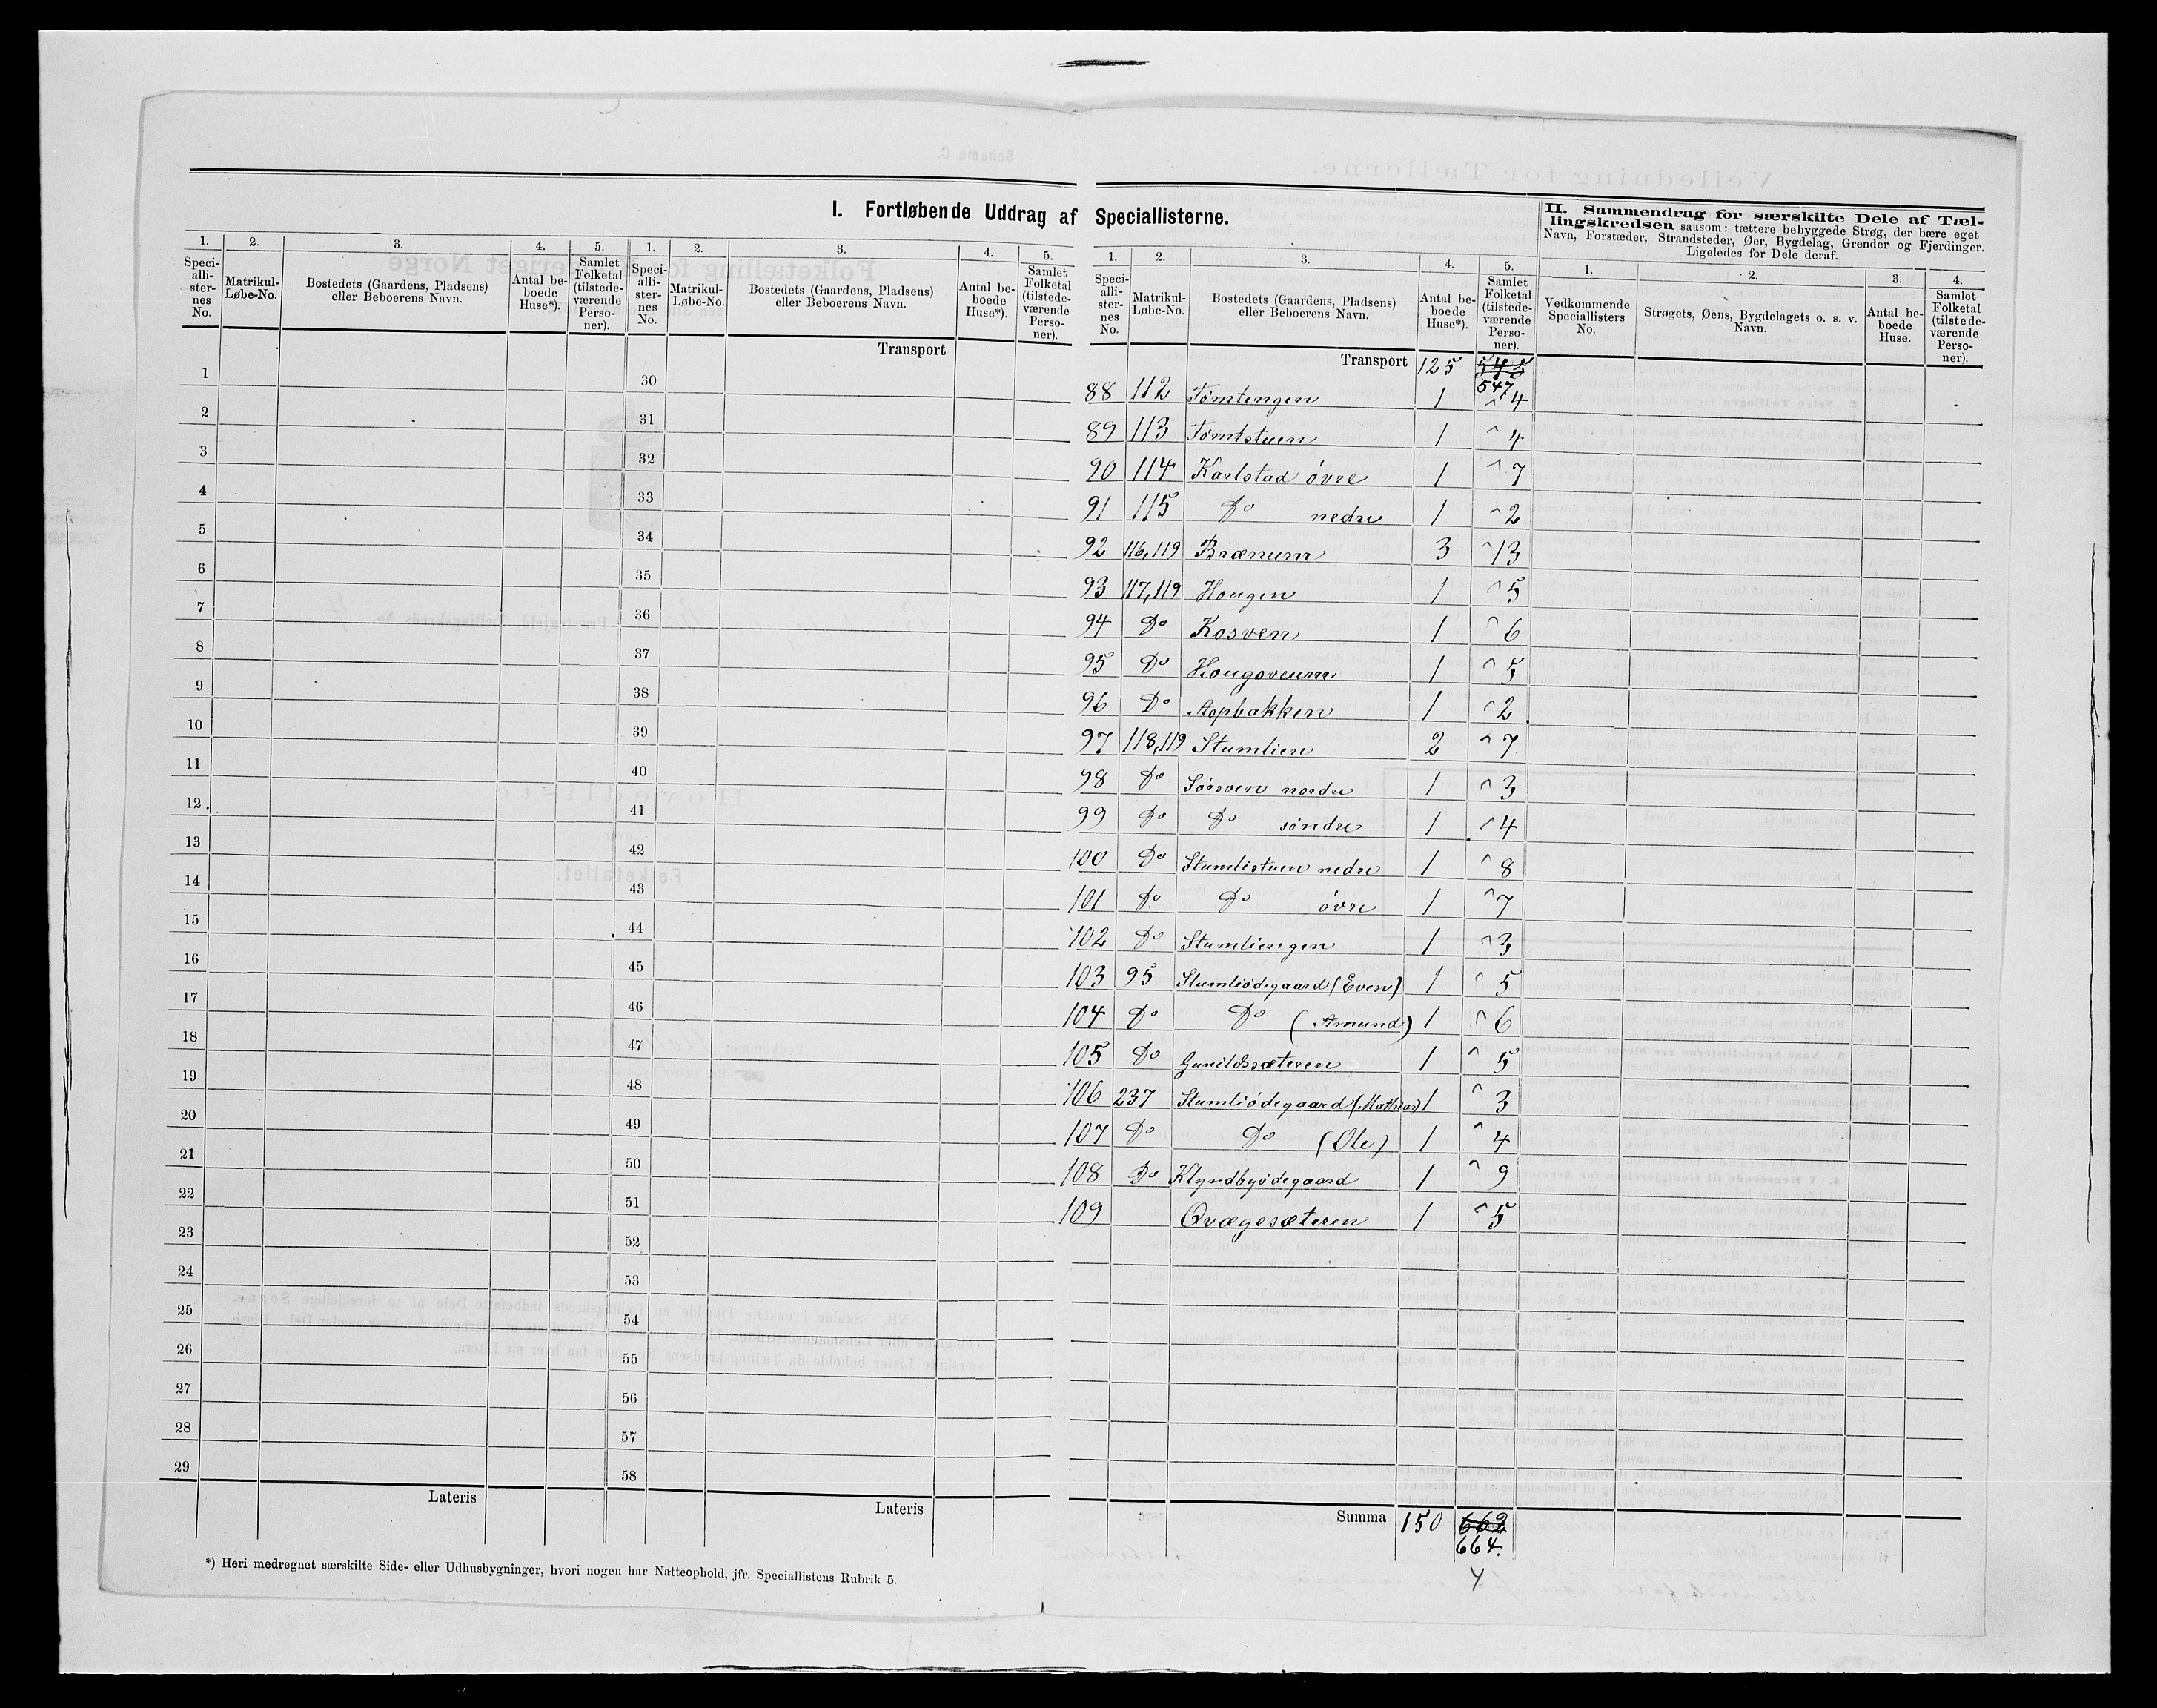 I. Fortløbende Uddrag af Speciallisterne.
II. Sammendrag for særskilte Dele af Tællingskredsen saasom: tættere bebyggede Strøg, der bære eget
Navn, Forstæder, Strandsteder, Øer, Bygdelag, Grender og Fjerdinger.
Ligeledes for Dele deraf.
1. 2. 3. 4. 5. 1. 2. 3. 4. 5. 1. 2. 3. 4. 5. 1. 2. 3. 4.
Speciallisternes No. Matrikul-Løbe-No. Bostedets (Gaardens, Pladsens) eller Beboerens Navn. Antal beboede Huse*). Samlet Folketal (tilstedeværende Personer).
Speciallisternes No. Matrikul-Løbe-No. Bostedets (Gaardens, Pladsens) eller Beboerens Navn. Antal beboede Huse*). Samlet Folketal (tilstedeværende Personer).
Speciallisternes No. Matrikul-Løbe-No. Bostedets (Gaardens, Pladsens) eller Beboerens Navn. Antal beboede Huse*). Samlet Folketal (tilstedeværende Personer).
Vedkommende Speciallisters No. Strøgets, Øens, Bygdelagets o. s. v. Navn. Antal beboede Huse. Samlet Folketal (tilstedeværende Personer).
Transport
Transport 125 545
547
1 30 88 112 Tomtengen 1 4
2 31 89 113 Tomtstuen 1 4
3 32 90 114 Karlstad övre 1 7
4 33 91 115 Do nedre 1 2
5 34 92 116,119 Brænum 3 13
6 35 93 117,119 Hougen 1 5
7 36 94 Do Kosven 1 6
8 37 95 Do Hougoveum 1 5
9 38 96 Do Aspbakken 1 2
10 39 97 118,119 Stumlien 2 7
11 40 98 Do Sörsven nordre 1 3
12 41 99 Do Do söndre 1 4
13 42 100 Do Stumlistuen nedre 1 8
14 43 101 Do Do övre 1 7
15 44 102 Do Stumliengen 1 3
16 45 103 95 Stumliödegaard (Even) 1 5
17 46 104 Do Do (Amund) 1 6
18 47 105 Do Gunildsæteren 1 5
19 48 106 237 Stumliödegaard (Mathias) 1 3
20 49 107 Do Do (Ole) 1 4
21 50 108 Do Klyndbyödegaard 1 9
22 51 109 Qvægesæteren 1 5
23 52
24 53
25 54
26 55
27 56
28 57
29 58
Lateris
Lateris
Summa 150 662
664.
*) Heri medregnet særskilte Side- eller Udhusbygninger, hvori nogen har Natteophold, jfr. Speciallistens Rubrik 5.